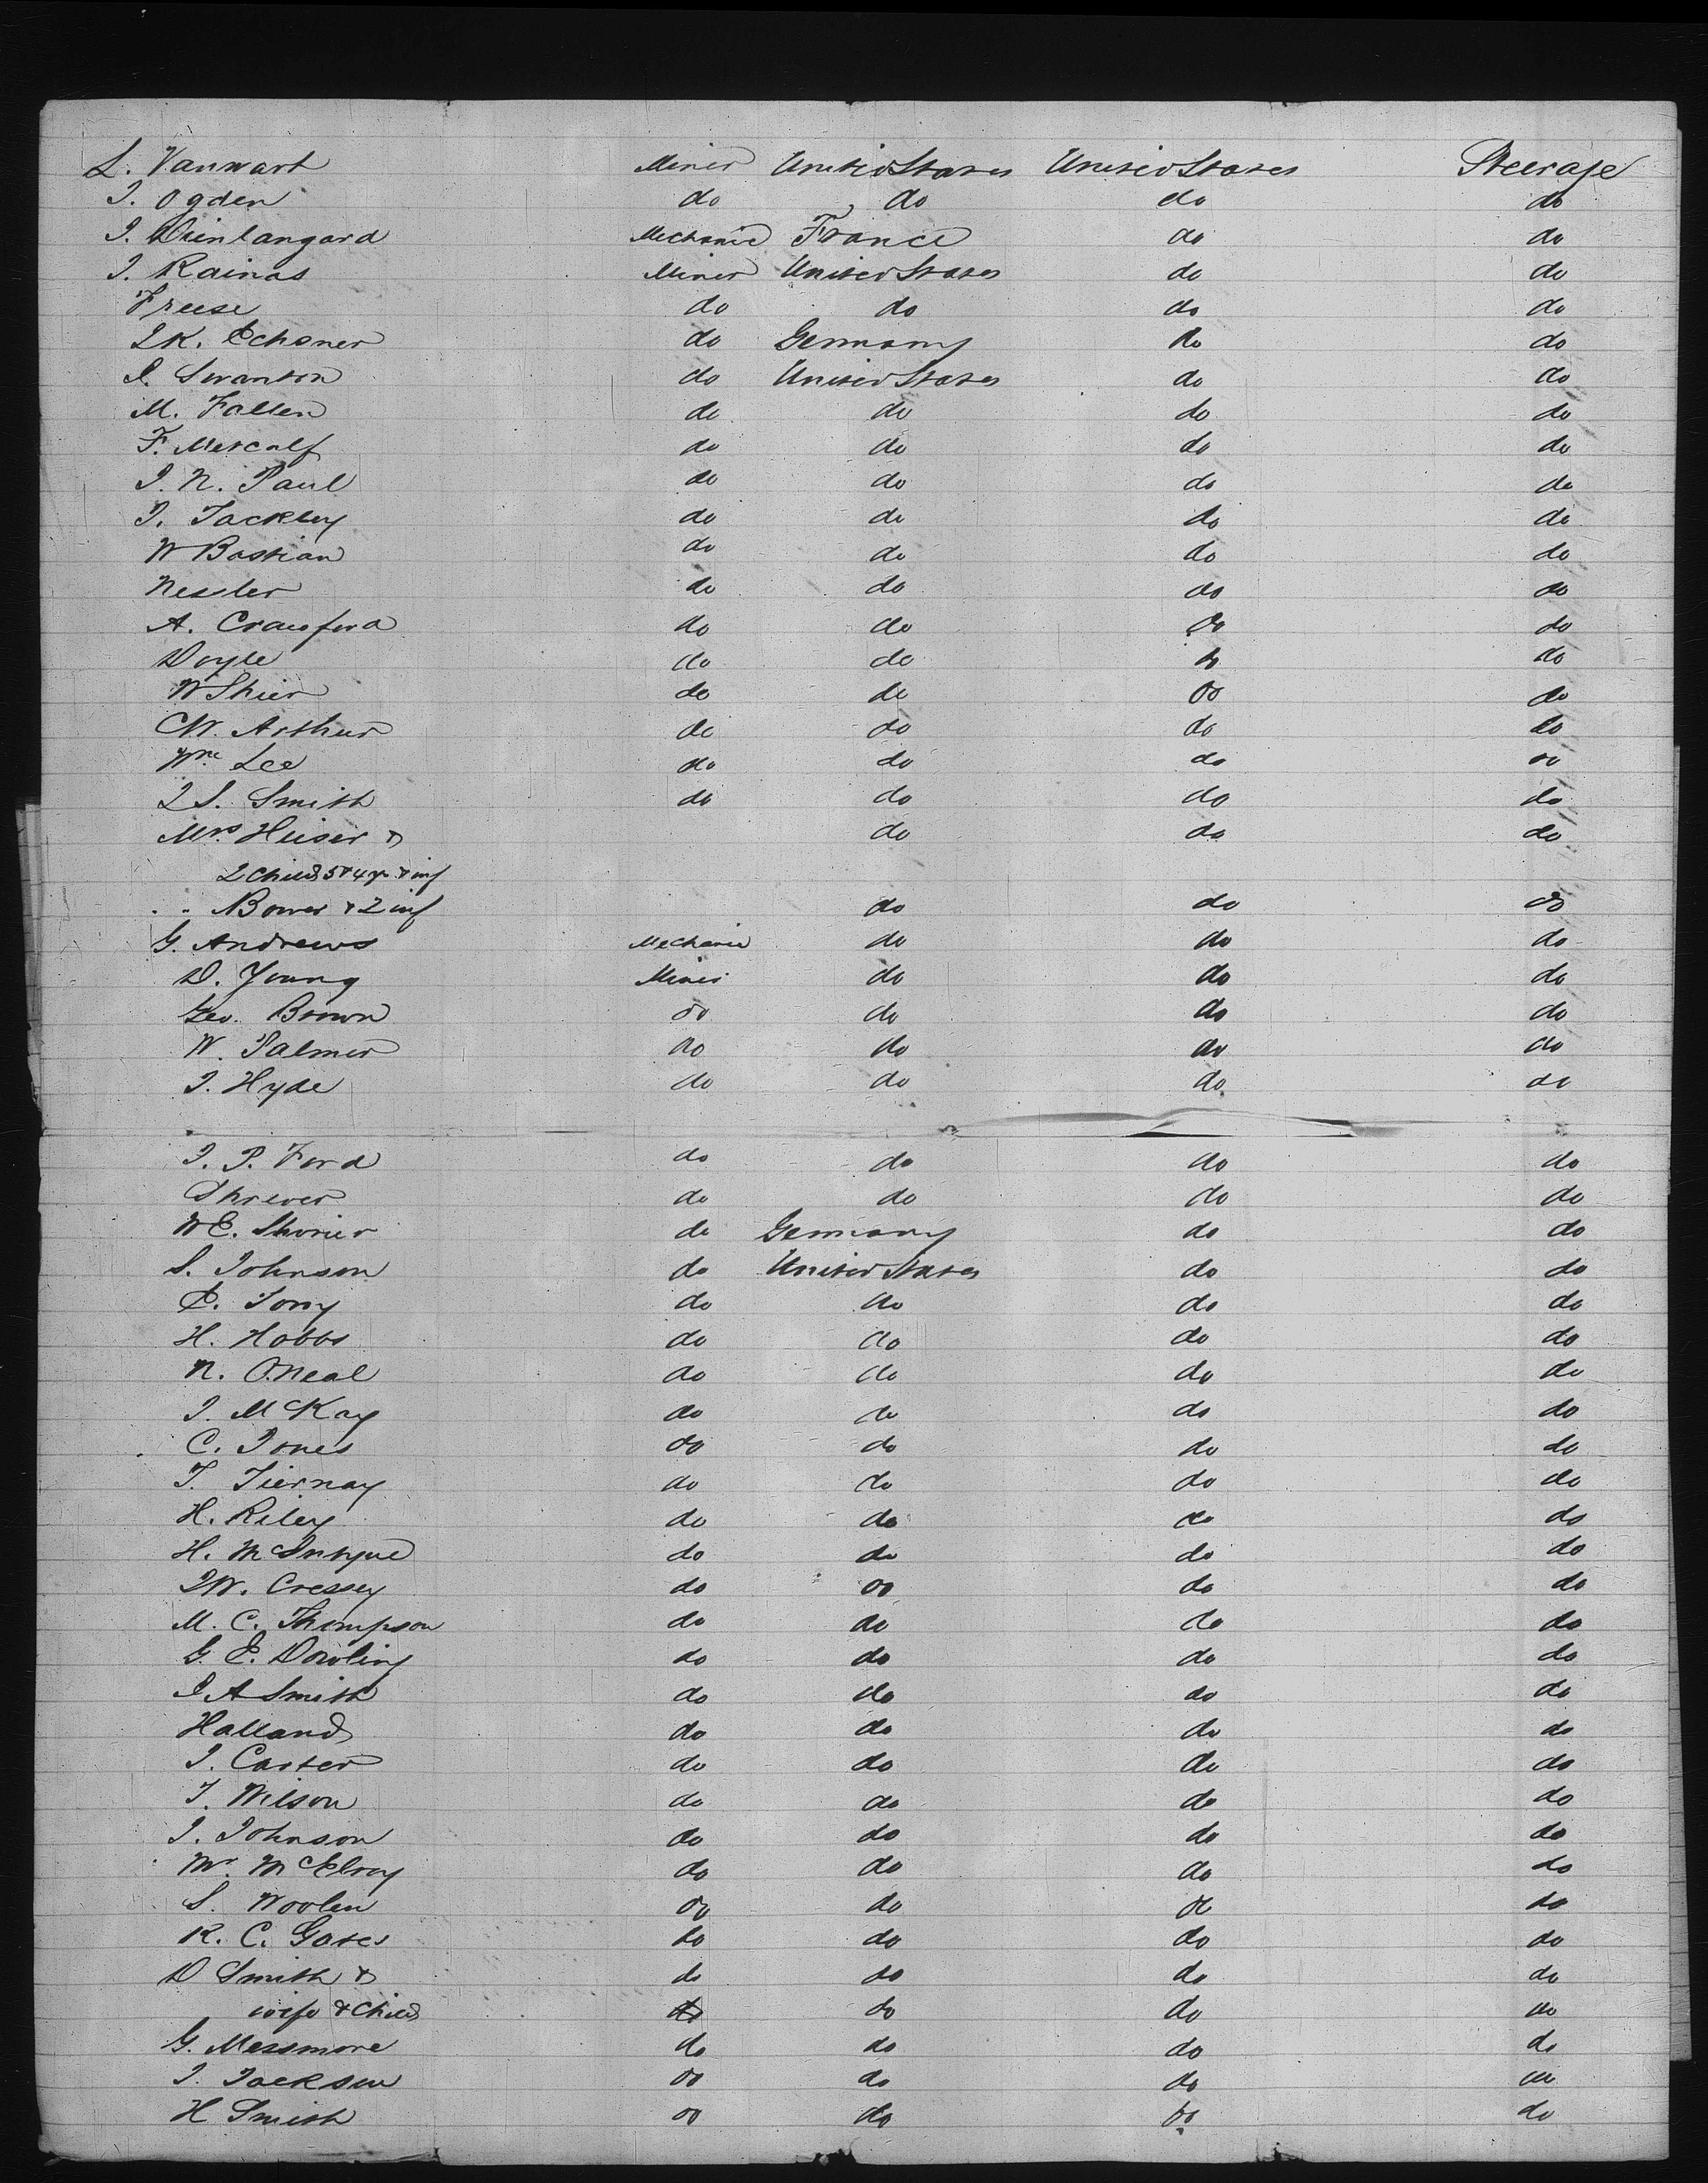 L. Vanwart Miner United States United States Steerage
J. Ogden do do do do
J. Dienlangard Mechanic France do do
J. Rainas Miner United States do do
Freese do do do do
J K. Echsner do Germany do do
J. Swanton do United States do do
M. Fallen do do do do
F. Metcalf do do do do
J. N. Paul do do do do
J. Tackley do do do do
W Bastian do do do do
Nessler do do do do
A. Crawford do do do do
Doyle do do do do
W Shier do do do do
C W. Arthur do do do do
Wm Lee do do do do
J S. Smith do do do do
Mrs Heiser & do do do
2 Child 5 & 4 yr & inf
" " Bower & 2 inf do do do
G. Andrews Mechanic do do do
D. Young Miner do do do
Geo. Brown do do do do
W. Palmer do do do do
J. Hyde do do do do
J. P. Ford do do do do
Shrever do do do do
W E. Shorier do Germany do do
S. Johnson do United States do do
E. Torry do do do do
H. Hobbs do do do do
N. O.Neal do do do do
J. McKay do do do do
C. Jones do do do do
T. Tiernay do do do do
H. Riley do do do do
H. McIntyre do do do do
J W. Cressey do do do do
M. C. Thompson do do do do
G. E. Dowling do do do do
J A Smith do do do do
Halland do do do do
J. Carter do do do do
T. Wilson do do do do
J. Johnson do do do do
Mr. McElroy do do do do
S. Woolen do do do do
R. C. Gates do do do do
D Smith & do do do do
wife & Child do do do do
G. Messmore do do do do
J. Jackson do do do do
H Smith do do do do